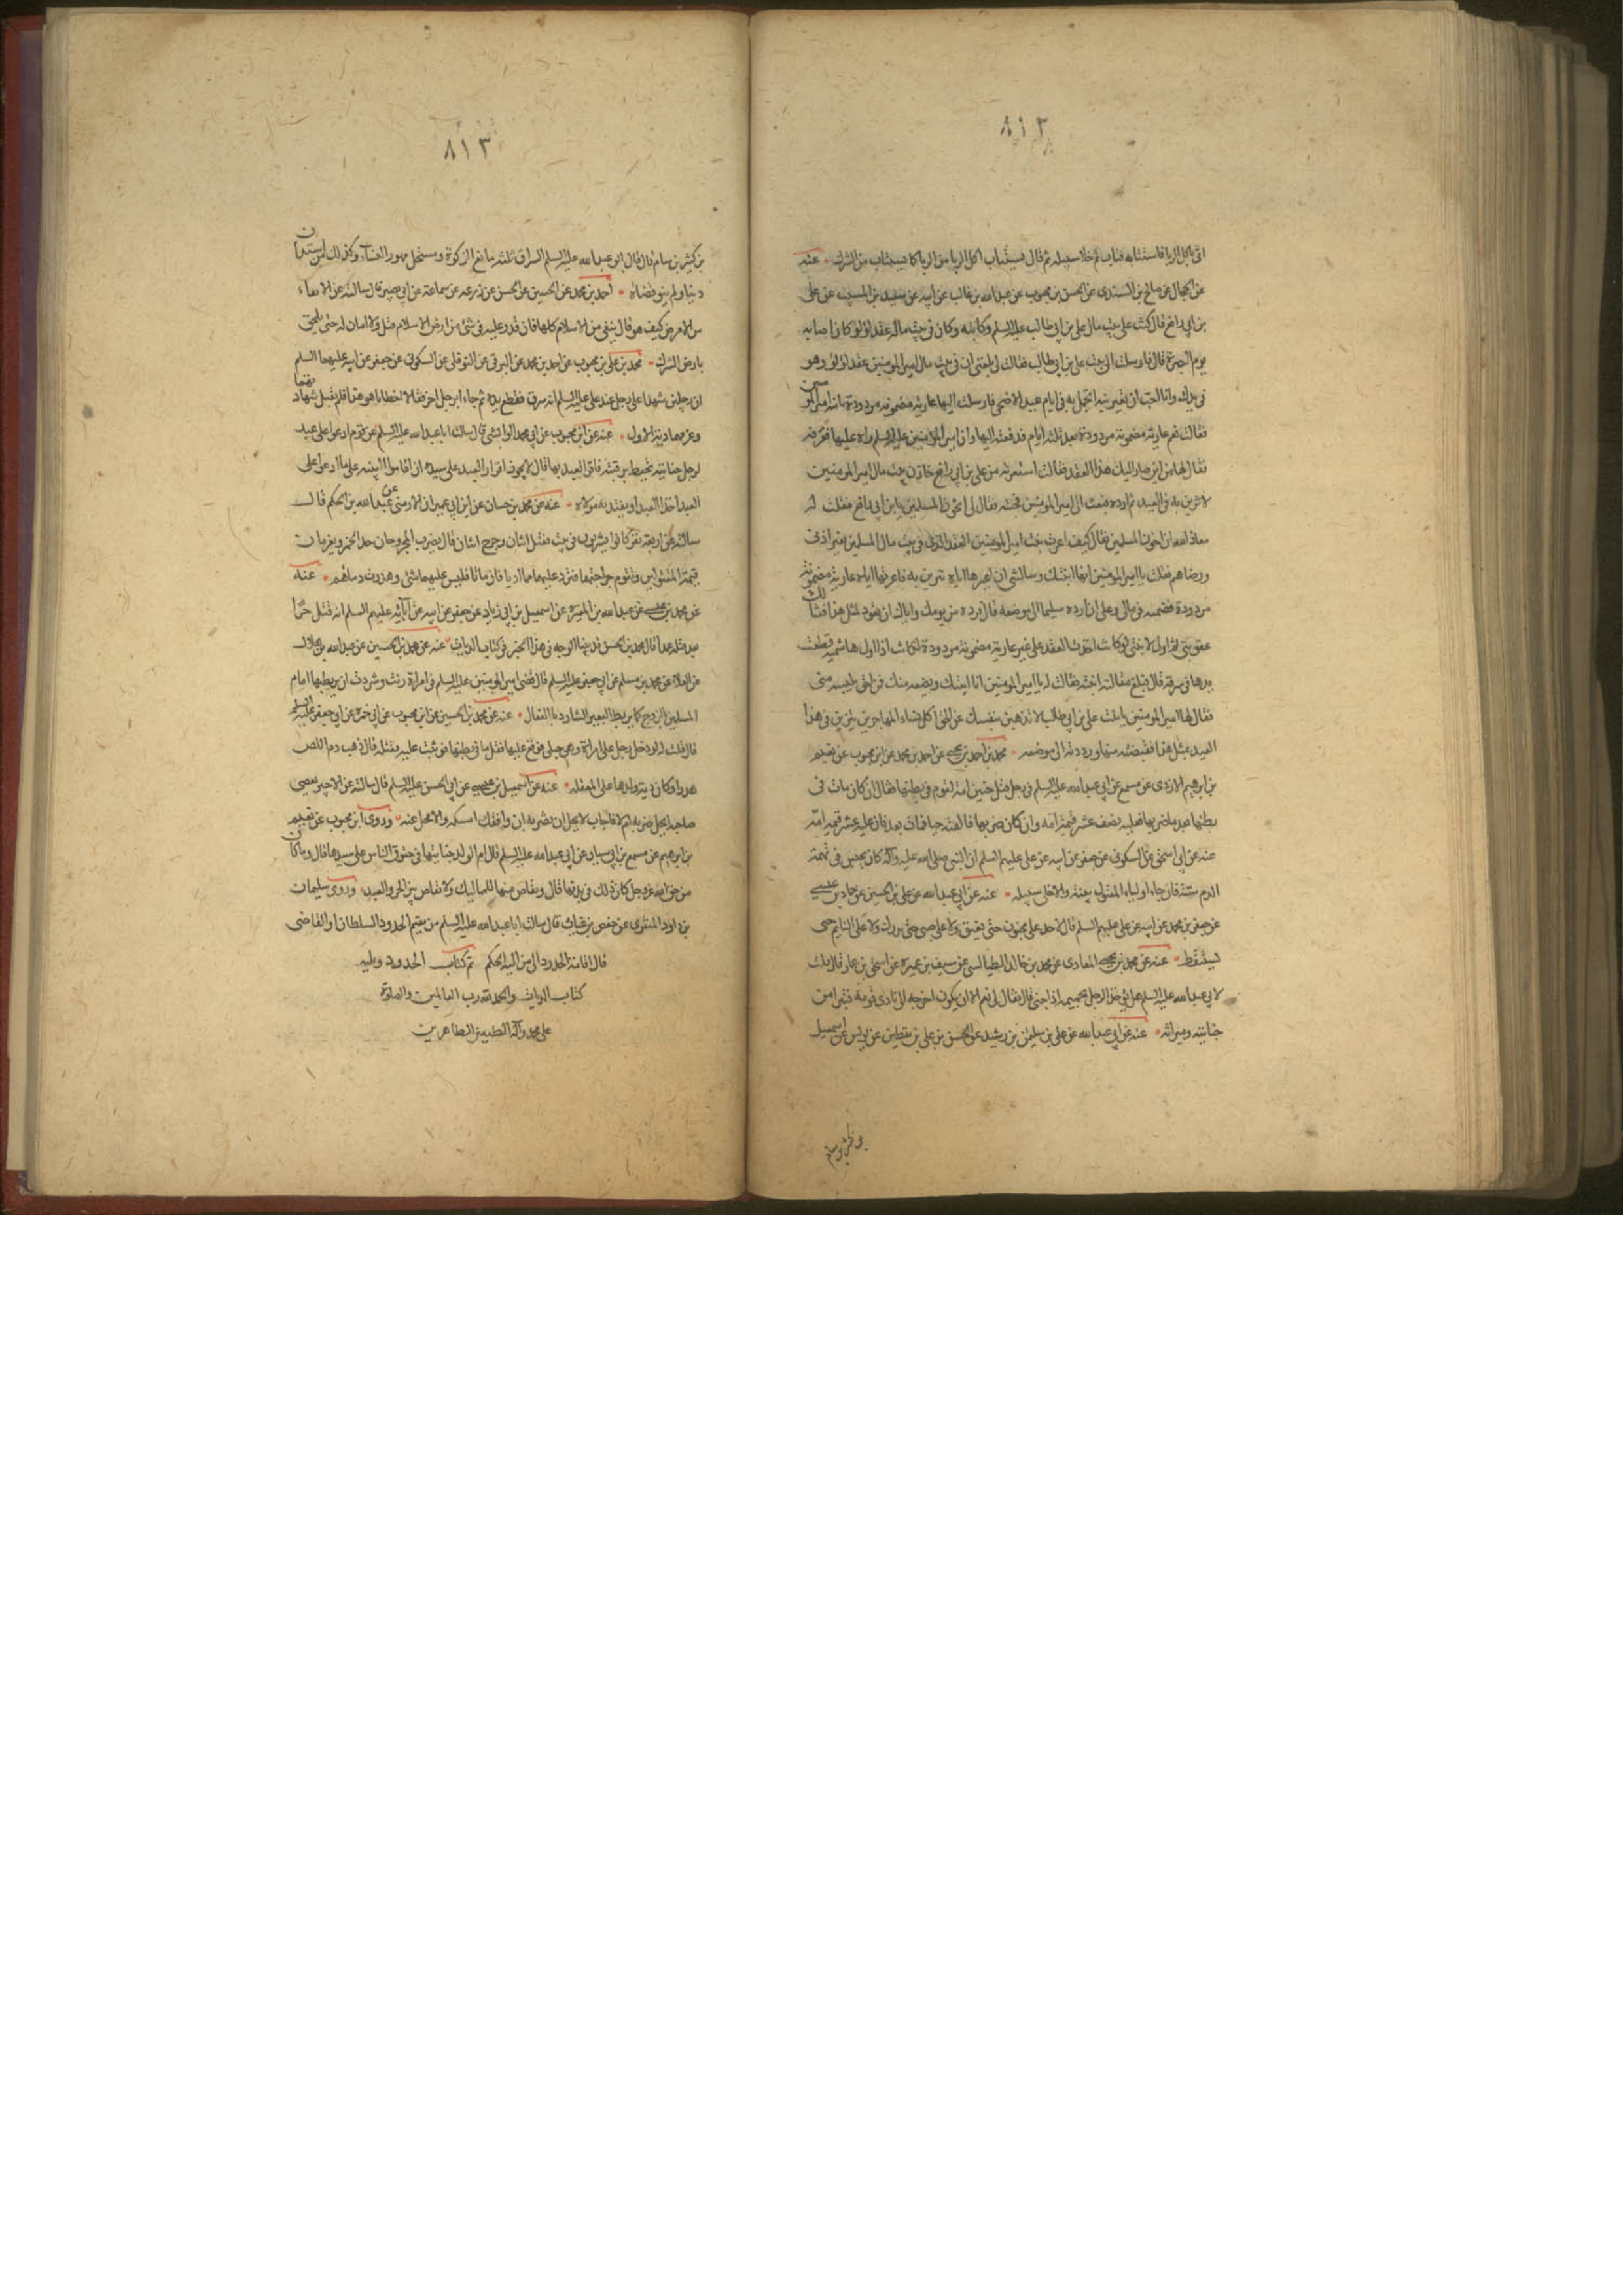 ٨١٢
اتى باكل الربا فاستتابه فتاب ثم خلا سبيله ثم قال يستتاب اكل الربا من الربا كما يستتاب من الشرك عنه
عن الحجال عن صالح بن السندى عن الحسن بن محبوب عن عبد الله بن غالب عن ابيه عن سعيد بن المسيب عن على
بن ابي رافع قال كنت على بيت مال على بن ابي طالب عليه السلم وكاتبه وكان في بيت ماله عقد لؤلؤ كان اصابه
يوم البصرة قال فارسلت الى بنت على بن ابي طالب فقالت لى بلغنى ان في بيت مال امير المومنين عقد لؤلؤ وهو
في يدك وانا احب ان تعيرنيه اتجمل به في ايام عيد الاضحى فارسلت اليها عارية مضمونة مردودة يا بنت امير المومنين
فقالت نعم عارية مضمونة مردودة بعد ثلثة ايام فدفعته اليها وان امير المؤمنين عليه السلم راه عليها فعرفه
فقال لها من اين صار اليك هذا العقد فقالت استعرته من على بن ابي رافع خازن بيت مال امير المومنين
لاتزين به في العيد ثم ارده فبعث الى امير المومنين فجئته فقال لى اتخون المسلمين يابن ابي رافع فقلت له
معاذ الله ان اخون المسلمين فقال كيف اعرت بنت امير المومنين العقد الذى في بيت مال المسلمين بغير اذنى
ورضاهم فقلت يا امير المومنين انها ابنتك وسالتنى ان اعيرها اياه تتزين به فاعرتها اياه عارية مضمونة
مردودة فضمنته في مالى وعلى ان ارده سليما الى موضعه قال فرده من يومك واياك ان تعود لمثل هذا فتنالك
عقوبتى ثم اولى لابنتى لو كانت اخذت العقد على غير عارية مضمونة مردودة لكانت اذا اول هاشمية قطعت
يدها في سرقة قال فبلغ مقالته ابنته فقالت له يا امير المومنين انا ابنتك وبضعة منك فمن احق بلبسه منى
فقال لها امير المومنين يا بنت على بن ابي طالب لا تذهبن بنفسك عن الحق اكل نساء المهاجرين يتزين في هذا
العيد بمثل هذا فقبضته منها ورددته الى موضعه محمد بن احمد بن يحيى عن احمد بن محمد عن ابن محبوب عن نعيم
بن ابرهيم الازدى عن مسمع عن ابي عبد الله عليه السلم في رجل قتل جنين امة لقوم في بطنها فقال ان كان مات في
بطنها بعد ما ضربها فعليه نصف عشر قيمة امه وان كان ضربها فالقته حيا فمات بعد فان عليه عشر قيمة امه
عنه عن ابي اسحق عن السكونى عن جعفر عن ابيه عن على عليهم السلم ان النبى صلى الله عليه وآله كان يحبس في تهمة
الدم ستة فان جاء اولياء المقتول ببينة والا خلى سبيله عنه عن ابي عبد الله عن على بن الحسين عن حماد بن عيسى
عن جعفر بن محمد عن ابيه عن على عليهم السلم قال لا حد على مجنون حتى يفيق ولا على صبى حتى يدرك ولا على النايم حتى
يستيقظ عنه عن محمد بن يحيى المعادى عن محمد بن خالد الطيالسى عن سيف بن عميرة عن اسحق بن عمار قال قلت
لابي عبد الله عليه السلم هل يؤخذ الرجل بحميمه اذا جنى قال فقال لى نعم الا ان يكون اخرجه الى نادى قومه فتبرا من
جنايته وميراثه عنه عن ابي عبد الله عن على بن سليمن بن رشيد عن الحسن بن على بن يقطين عن يونس عن اسمعيل
٨١٣
بن كثير بن سام قال قال ابو عبد الله عليه السلم السراق ثلثة مانع الزكوة ومستحل مهور النساء وكذلك من استدان
دينا ولم ينو قضاه احمد بن محمد عن الحسين عن الحسن عن زرعه عن سماعة عن ابي بصير قال سالته عن الانفاء
من الارض كيف هو قال ينفى من الاسلام كلها فان قدر عليه في شئ من ارض الاسلام قتل ولا امان له حتى يلحق
بارض الشرك محمد بن على بن محبوب عن احمد بن محمد عن البرقى عن النوفلى عن السكونى عن جعفر عن ابيه عليهما السلم
ان رجلين شهدا على رجل عند على عليه السلم انه سرق فقطع يده ثم جاءا برجل اخر فقالا اخطانا هو هذا فلم يقبل شهادتهما
وغرمهما دية الاول عنه عن ابن محبوب عن ابي محمد الوابشى قال سالت ابا عبد الله عليه السلم عن قوم ادعوا على عبد
لرجل جناية تحيط برقبته فاقر العبد بها قال لا يجوز اقرار العبد على سيده ان اقاموا البينه على ما ادعوا على
العبد اخذ العبد او يفتديه مولاه عنه عن محمد بن حسان عن ابن ابي عمير ان الارمنى عن عبد الله بن الحكم قال
سالته عن اربعة نفر كانوا يشربون في بيت فقتل اثنان وجرح اثنان قال يضرب المجروحان حد الخمر ويغرمان
قيمة المقتولين وتقوم جراحتهما فترد عليهما مما اديا فان ماتا فليس عليهما شئ وهدرت دماؤهم عنه
عن محمد بن عيسى عن عبد الله بن المغيرة عن اسمعيل بن ابي زياد عن جعفر عن ابيه عن آبائه عليهم السلم انه قتل حرا
بعبد قتله عمدا قال محمد بن الحسن قد بينا الوجه في هذا الخبر في كتاب الديات عنه عن محمد بن الحسين عن عبد الله بن هلال
عن العلاء عن محمد بن مسلم عن ابي جعفر عليه السلم قال قضى امير المومنين عليه السلم في امراة زنت وشردت ان يربطها امام
المسلمين بالزوج كما يربط البعير الشارد بالعقال عنه عن محمد بن الحسين عن ابن محبوب عن ابي حمزة عن ابي جعفر عليه السلم
قال قلت له لو دخل رجل على امراة وهى حبلى فوقع عليها فقتل ما في بطنها فوثبت عليه فقتلته قال ذهب دم اللص
هدرا وكان دية ولدها على المعقلة عنه عن اسمعيل بن عيسى عن ابي الحسن عليه السلم قال سالته عن الاجير يعصى
صاحبه ايحل ضربه ام لا فاجاب لا يحل ان يضربه ان وافقك امسكه والا فخل عنه وروى ابن محبوب عن نعيم
بن ابرهيم عن مسمع بن ابي سيار عن ابي عبد الله عليه السلم قال ام الولد جنايتها في حقوق الناس على سيدها قال وما كان
من حق الله عز وجل كان ذلك في بدنها قال ويقاص منها للمماليك ولا يقاص بين الحر والعبد وروى سليمان
بن داود المنقرى عن حفص بن غياث قال سالت ابا عبد الله عليه السلم من يقيم الحدود السلطان او القاضى
فال اقامة الحدود الى من اليه الحكم تم كتاب الحدود ويليه
كتاب الديات والحمد لله رب العالمين والصلوة
على محمد وآله الطيبين الطاهرين